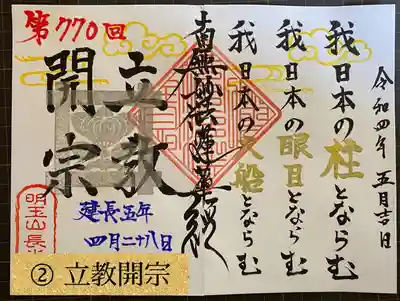 令和四年 五月吉日
我日本の柱とならむ
我日本の眼目とならむ
我日本の大船とならむ
南無妙法蓮華経
第770回
立教
開宗
建長五年
四月二十八日
② 立教開宗